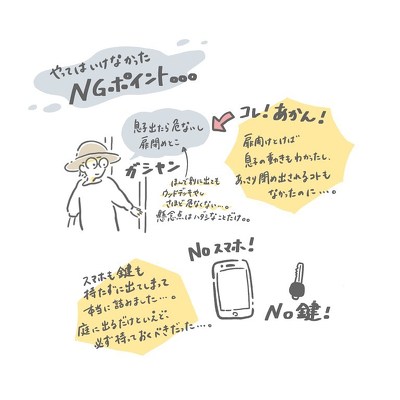 やってはいけなかった
NGポイント。。。
息子出たら危ないし
扉閉めとこ
コレ!あかん!
ガシャン
扉開けとけば
息子の動きもわかったし、
あっさり閉め出されるコトも
なかったのに…。
ほんで別に出ても
ウッドデッキやし
さほど危なくない…。
懸念点はハダシなことだけ。。
Noスマホ!
スマホも鍵も
持たずに出てしまって
本当に詰みました…。
庭に出るだけといえど、
必ず持っておくべきだった…。
No鍵!